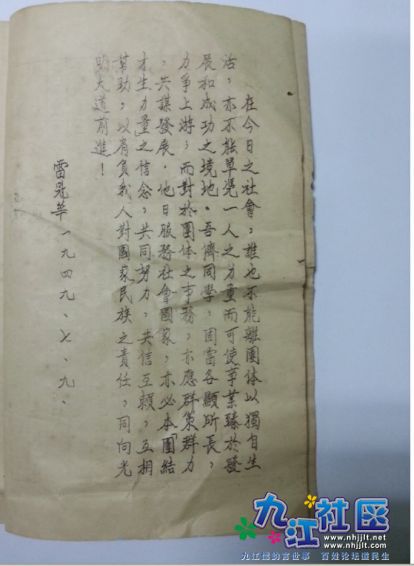 在今日之社會，誰也不能離團体以獨自生
活，亦不能單凴一人之力量而可使事業臻於發
展和成功之境地。吾儕同學，固當各顯所長，
力爭上游；而對於團体之事務，亦應群策群力
，共謀發展。他日服務社會國家，亦必本「團結
才生力量」之信念，共同努力，共信互賴，互相
幫助，以肩負我人對國家民族之責任，同向光
明大道前進！
雷 華 一九四九、七、九、
九江社区
www.nhjjlt.net
www.nhjjlt.com
九江儒韵言世事 百姓论坛 民生